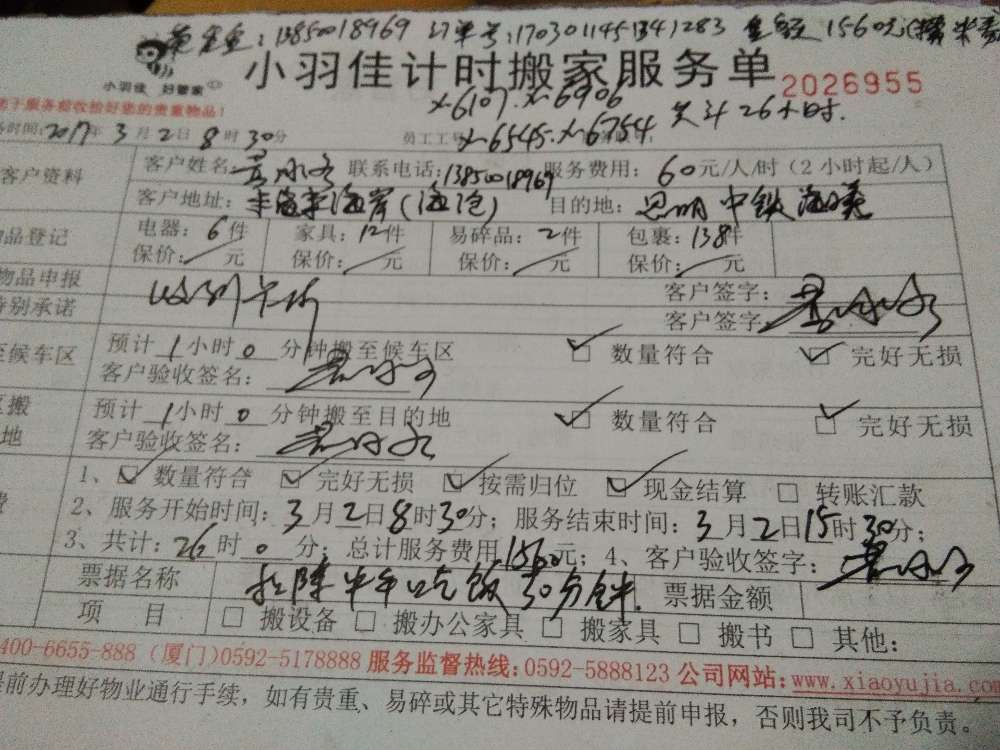 13850018969 订单号:1703011451341283 金额 1560元
小羽佳 好管家
小羽佳计时搬家服务单 2026955
服务前收拾好您的贵重物品!
x-6107. x-6906
务时间:2017年3月2日8时30分 员工工号 x-6545. x-6754 共计26小时.
客户资料
客户姓名: 联系电话:13850018969 服务费用:60元/人/时(2小时起/人)
客户地址: 海岸(海沧) 目的地:思明 中铁
物品登记
电器:6件 家具:12件 易碎品:2件 包裹:138件
保价:/元 保价:/元 保价:/元 保价:/元
物品申报 客户签字:
特别承诺 客户签字:
至候车区 预计1小时0分钟搬至候车区 ☑ 数量符合 ☑ 完好无损
客户验收签名:
搬 预计1小时0分钟搬至目的地 ☑ 数量符合 ☑ 完好无损
地 客户验收签名:
1、☑ 数量符合 ☑ 完好无损 ☑ 按需归位 ☑ 现金结算 □ 转账汇款
2、服务开始时间:3月2日8时30分;服务结束时间:3月2日15时30分;
3、共计:26时0分;总计服务费用1560元;4、客户验收签字:
票据名称 扣除中午吃饭30分钟. 票据金额
项 目 □ 搬设备 □ 搬办公家具 □ 搬家具 □ 搬书 □ 其他:
400-6655-888 (厦门)0592-5178888 服务监督热线:0592-5888123 公司网站:www.xiaoyujia.com
提前办理好物业通行手续,如有贵重、易碎或其它特殊物品请提前申报,否则我司不予负责。